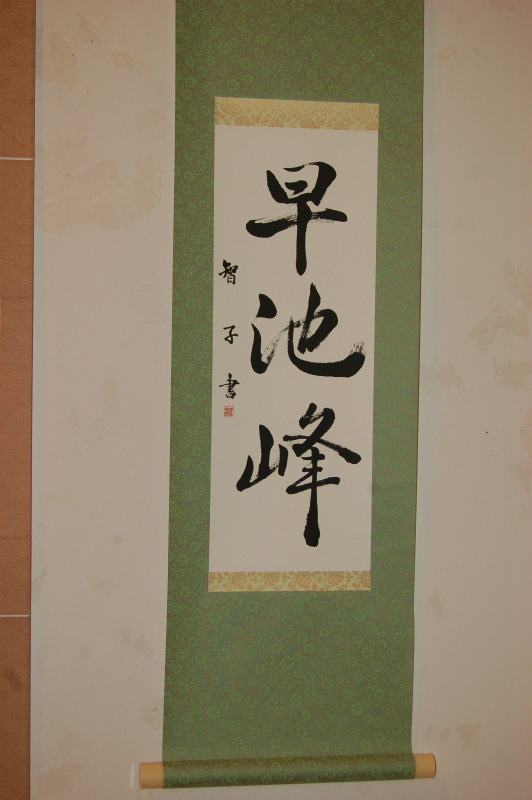 早池峰
智子書